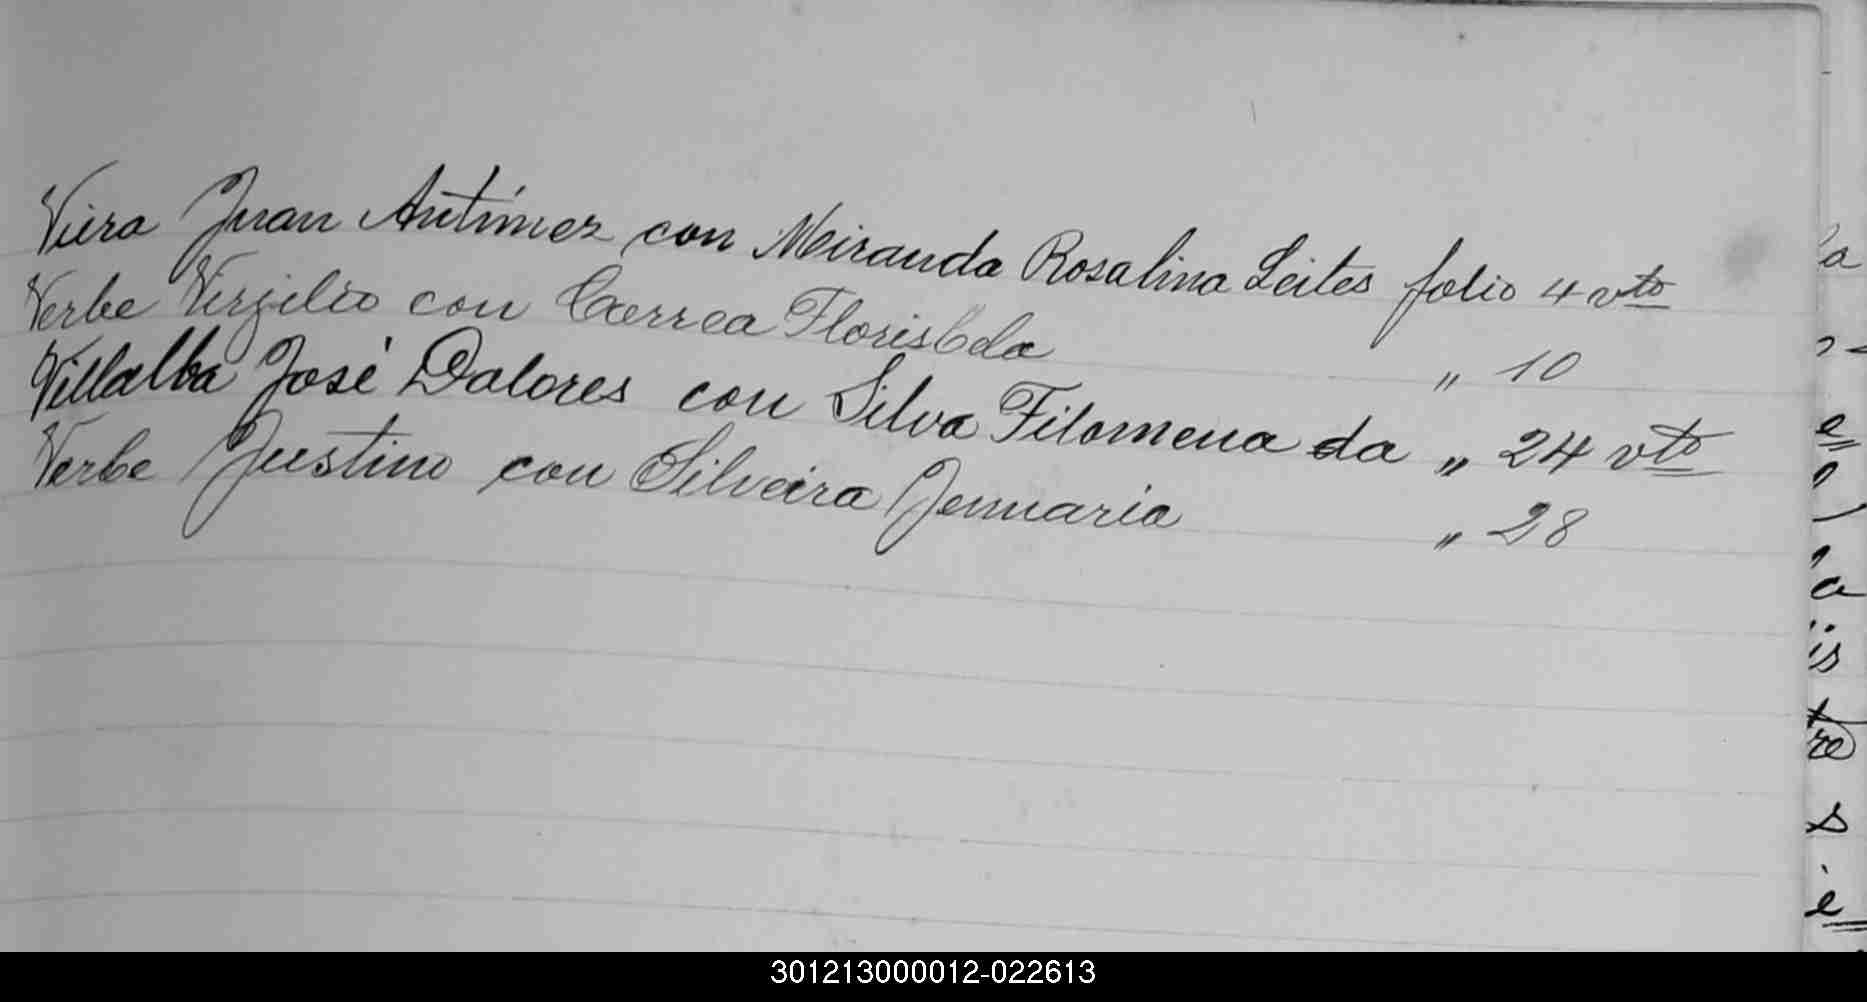 Viera Juan Antimez con Meiranda Rosalina Leites folio 4 vto
Verbe Virgilio con Correa Florisbela " 10
Villalba José Dalores con Silva Filomena da " 24 vto
Verbe Justino con Silveira Jenuaria " 28
301213000012-022613